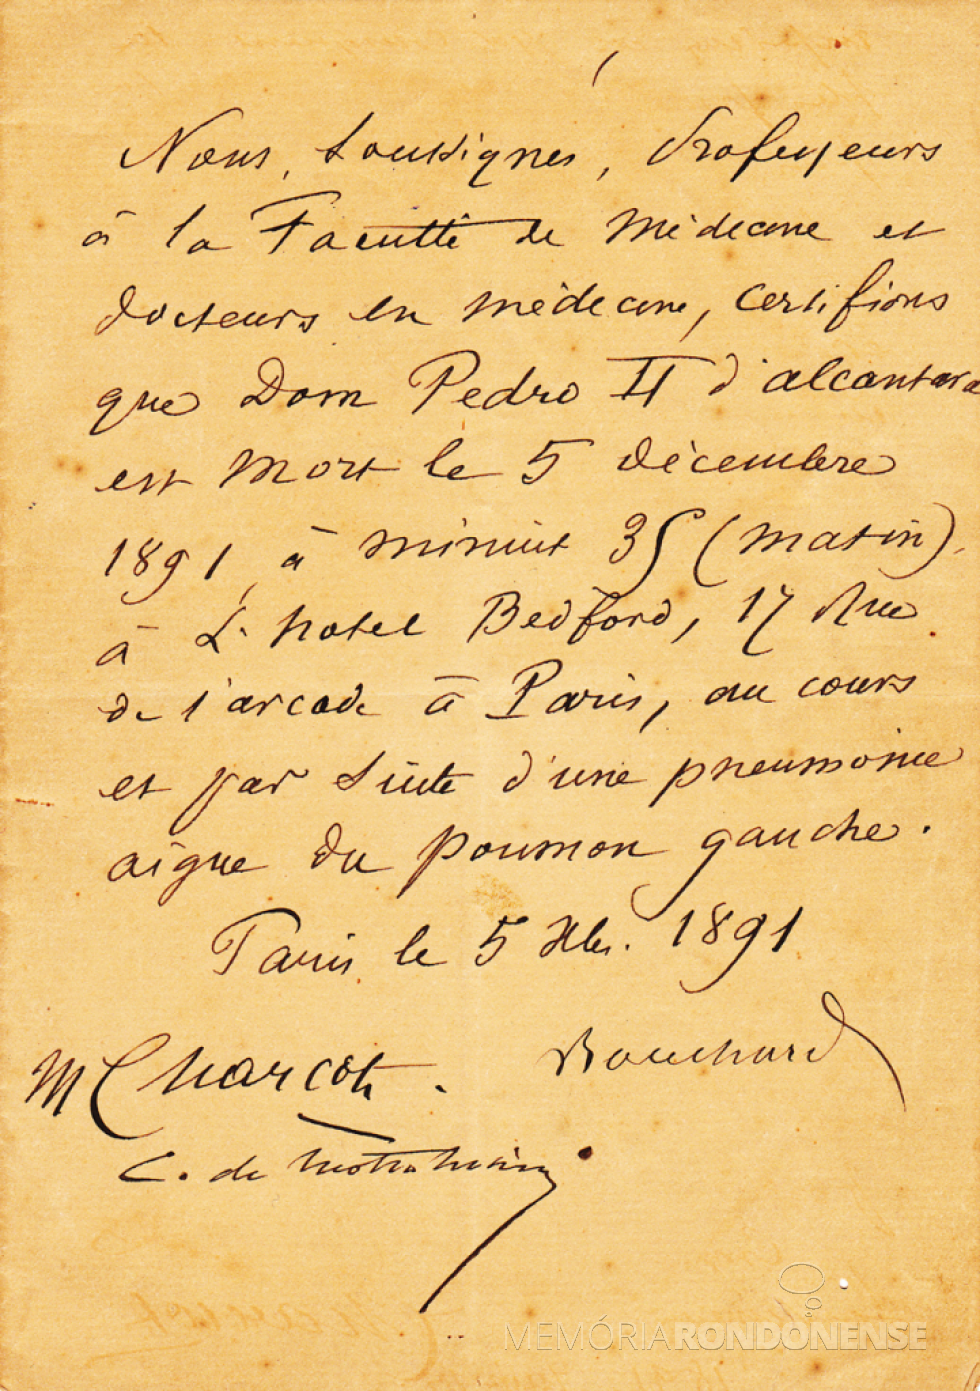 Nous, soussignés, Professeurs
à la Faculté de Médecine et
docteurs en médecine, certifions
que Dom Pedro II d'alcantara
est mort le 5 décembre
1891, à minuit 35 (matin).
à L'hotel Bedford, 17 Rue
de l'arcade à Paris, au cours
et par suite d'une pneumonie
aigue du poumon gauche.
Paris le 5 Xbr. 1891
M Charcot. Bouchard
C. de
MEMÓRIARONDONENSE